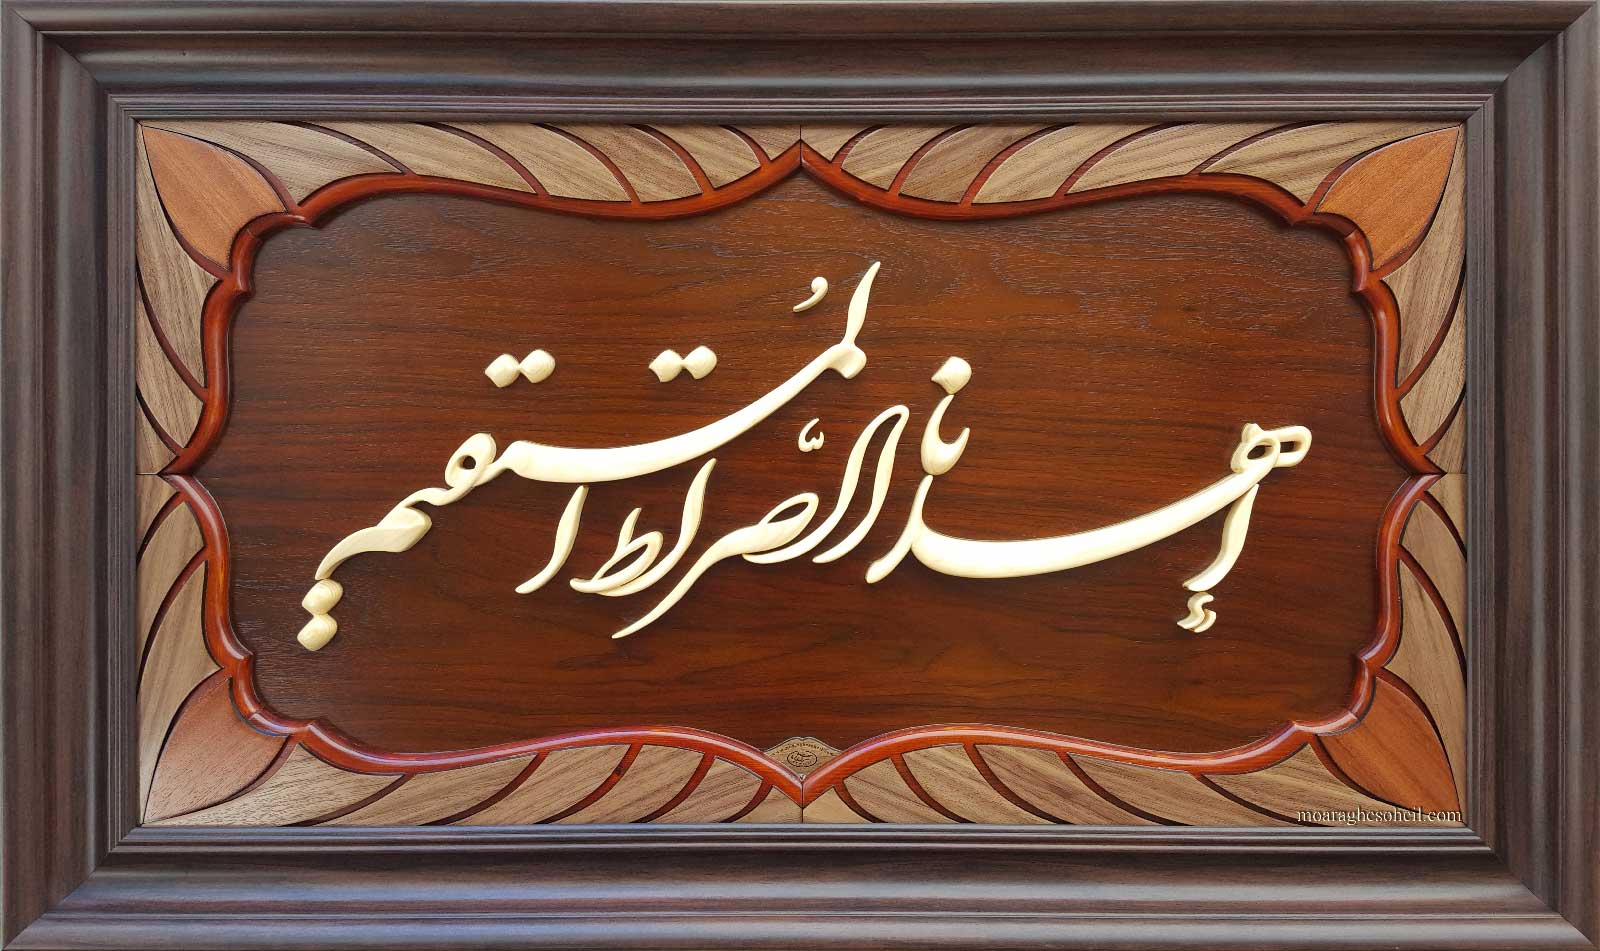 إهدنا الصّراط المُستقیم
moaraghesoheil.com